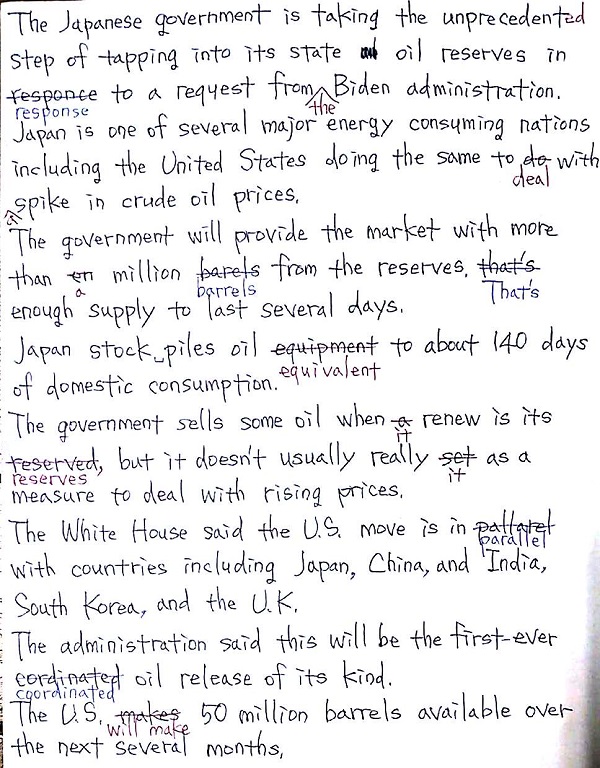 The Japanese government is taking the unprecedented
step of tapping into its state oil reserves in
responce to a request from Biden administration.
response the
Japan is one of several major energy consuming nations
including the United States doing the same to do with
deal
a
spike in crude oil prices.
The government will provide the market with more
than en million barels from the reserves. that's
a barrels That's
enough supply to last several days.
Japan stock piles oil equipment to about 140 days
equivalent
of domestic consumption.
The government sells some oil when a renew is its
it
reserved, but it doesn't usually really set as a
reserves it
measure to deal with rising prices.
The White House said the U.S. move is in pallarel
parallel
with countries including Japan, China, and India,
South Korea, and the U.K.
The administration said this will be the first-ever
cordinated oil release of its kind.
coordinated
The U.S. makes 50 million barrels available over
will make
the next several months,